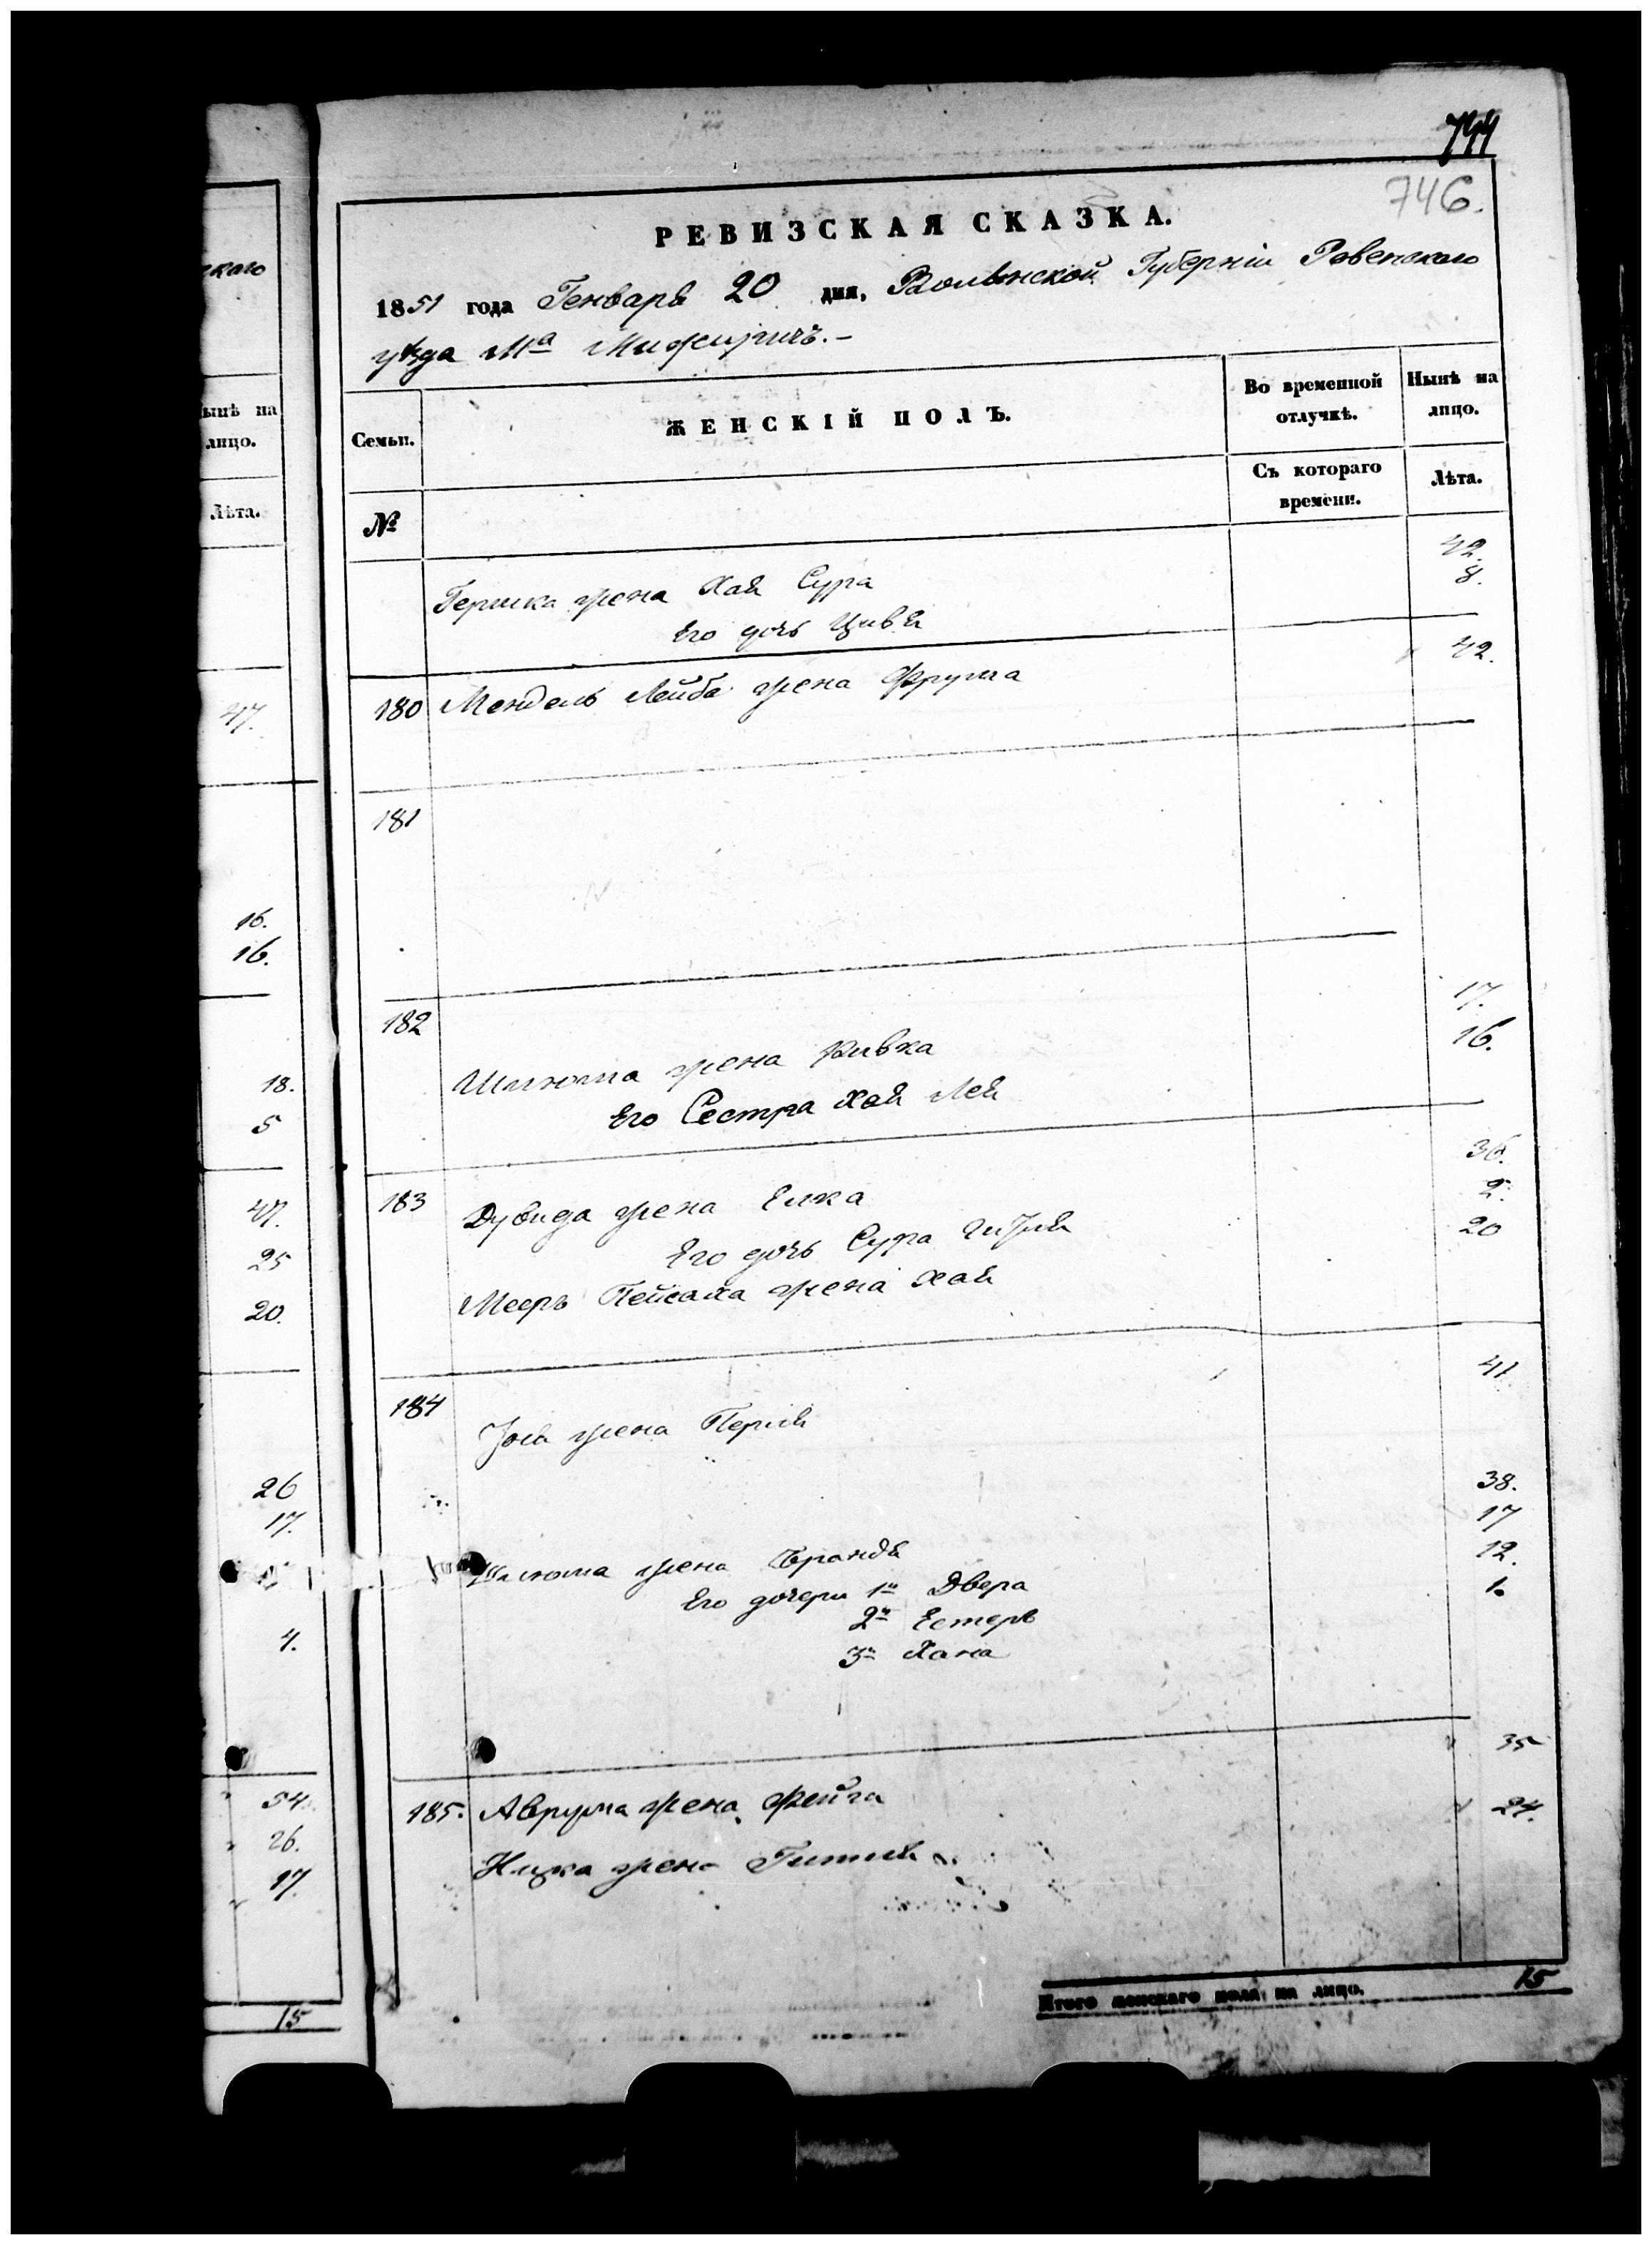 744
746.
РЕВИЗСКАЯ СКАЗКА.
1851 года Генваря 20 дня, Волынской Губерніи Ровенскаго
уѣзда Мⁿ Межиричъ.-
Семьи.
ЖЕНСКІЙ ПОЛЪ.
Во временной отлучкѣ.
Нынѣ на лицо.
№
Съ котораго времени.
Лѣта.
Гершка жена Хая Сура 42.
Его дочь Цивя 8.
180 Мендель Лейба жена Фрума 42.
181
182
Шлиома жена Ривка 17.
Его Сестра Хая Лея 16.
183 Дувида жена Елка 36.
Его дочь Сура Гитля 2.
Меерь Пейсаха жена Хая 20
184
жена Перля 41
Шлиома жена Брандя 38.
Его дочери 1я Двера 17
2я Естеръ 12.
3я Хана 1.
185. Аврума жена Фейга 35
жена Гитля 24.
Итого женскаго пола на лицо. 15
скаго
Нынѣ на
лицо.
Лѣта.
47.
16.
16.
18.
5
47.
25
20.
26
17.
4.
54.
26.
17.
15